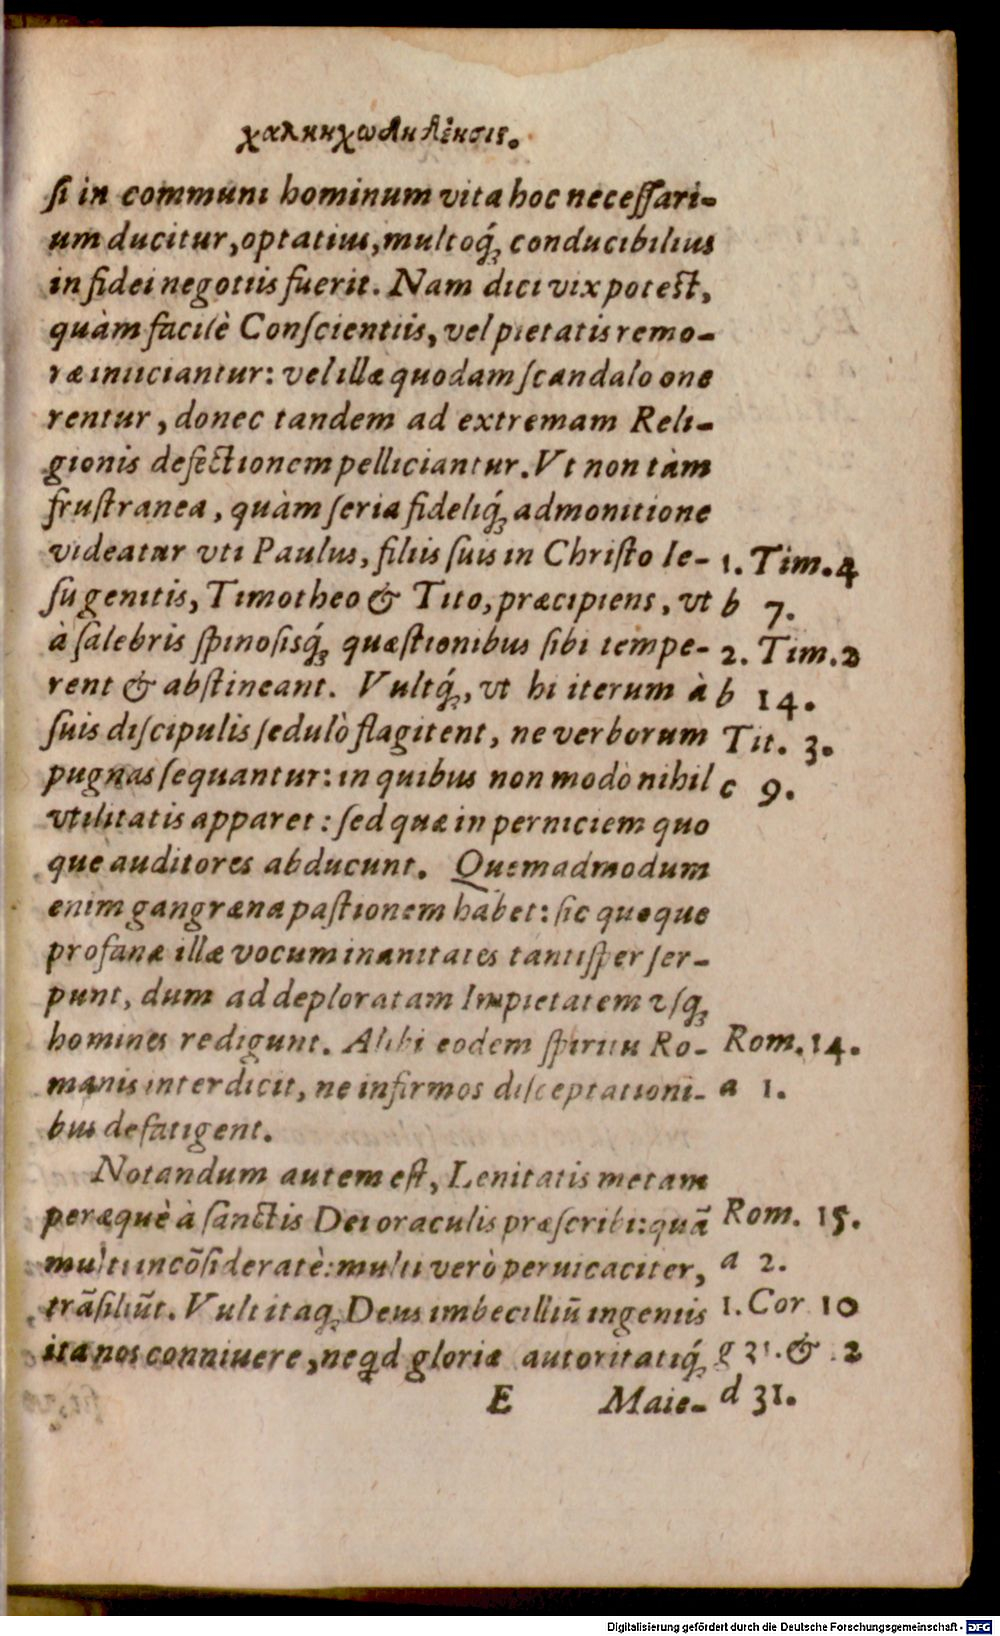 ſi in communi hominum vita hoc neceſſari-
um ducitur, optatius, multoq́; conducibilius
in fidei negotiis fuerit. Nam dici vix poteſt,
quàm facilè Conſcientiis, vel pietatis remo-
ræ iniiciantur: vel illæ quodam ſcandalo one
rentur, donec tandem ad extremam Reli-
gionis defectionem pelliciantur. Vt non tàm
fruſtranea, quàm ſeria fideliq́; admonitione
videatur vti Paulus, filiis ſuis in Chriſto Ie-
ſu genitis, Timotheo & Tito, præcipiens, vt
à ſalebris ſpinoſisq́; quæſtionibus ſibi tempe-
rent & abſtineant. Vultq́;, vt hi iterum à
ſuis diſcipulis ſedulò flagitent, ne verborum
pugnas ſequantur: in quibus non modo nihil
vtilitatis apparet: ſed quæ in perniciem quo
que auditores abducunt. Quemadmodum
enim gangræna paſtionem habet: ſic quoque
profanæ illæ vocum inanitates tantiſper ſer-
punt, dum ad deploratam Impietatem vſq;
homines redigunt. Alibi eodem ſpiritu Ro-
manis interdicit, ne infirmos diſceptationi-
bus defatigent.
Notandum autem eſt, Lenitatis metam
peræquè à ſanctis Dei oraculis præſcribi: quā
multi incōſideratè: multi verò peruicaciter,
trāſiliūt. Vult itaq; Deus imbecilliū ingeniis
ita nos conniuere, neqd gloriæ autoritatiq́;
E Maie-
1. Tim. 4
b 7.
2. Tim. 2
b 14.
Tit. 3.
c 9.
Rom. 14.
a 1.
Rom. 15.
a 2.
1. Cor 10
g 31. & 2
d 31.
Digitalisierung gefördert durch die Deutsche Forschungsgemeinschaft - DFG